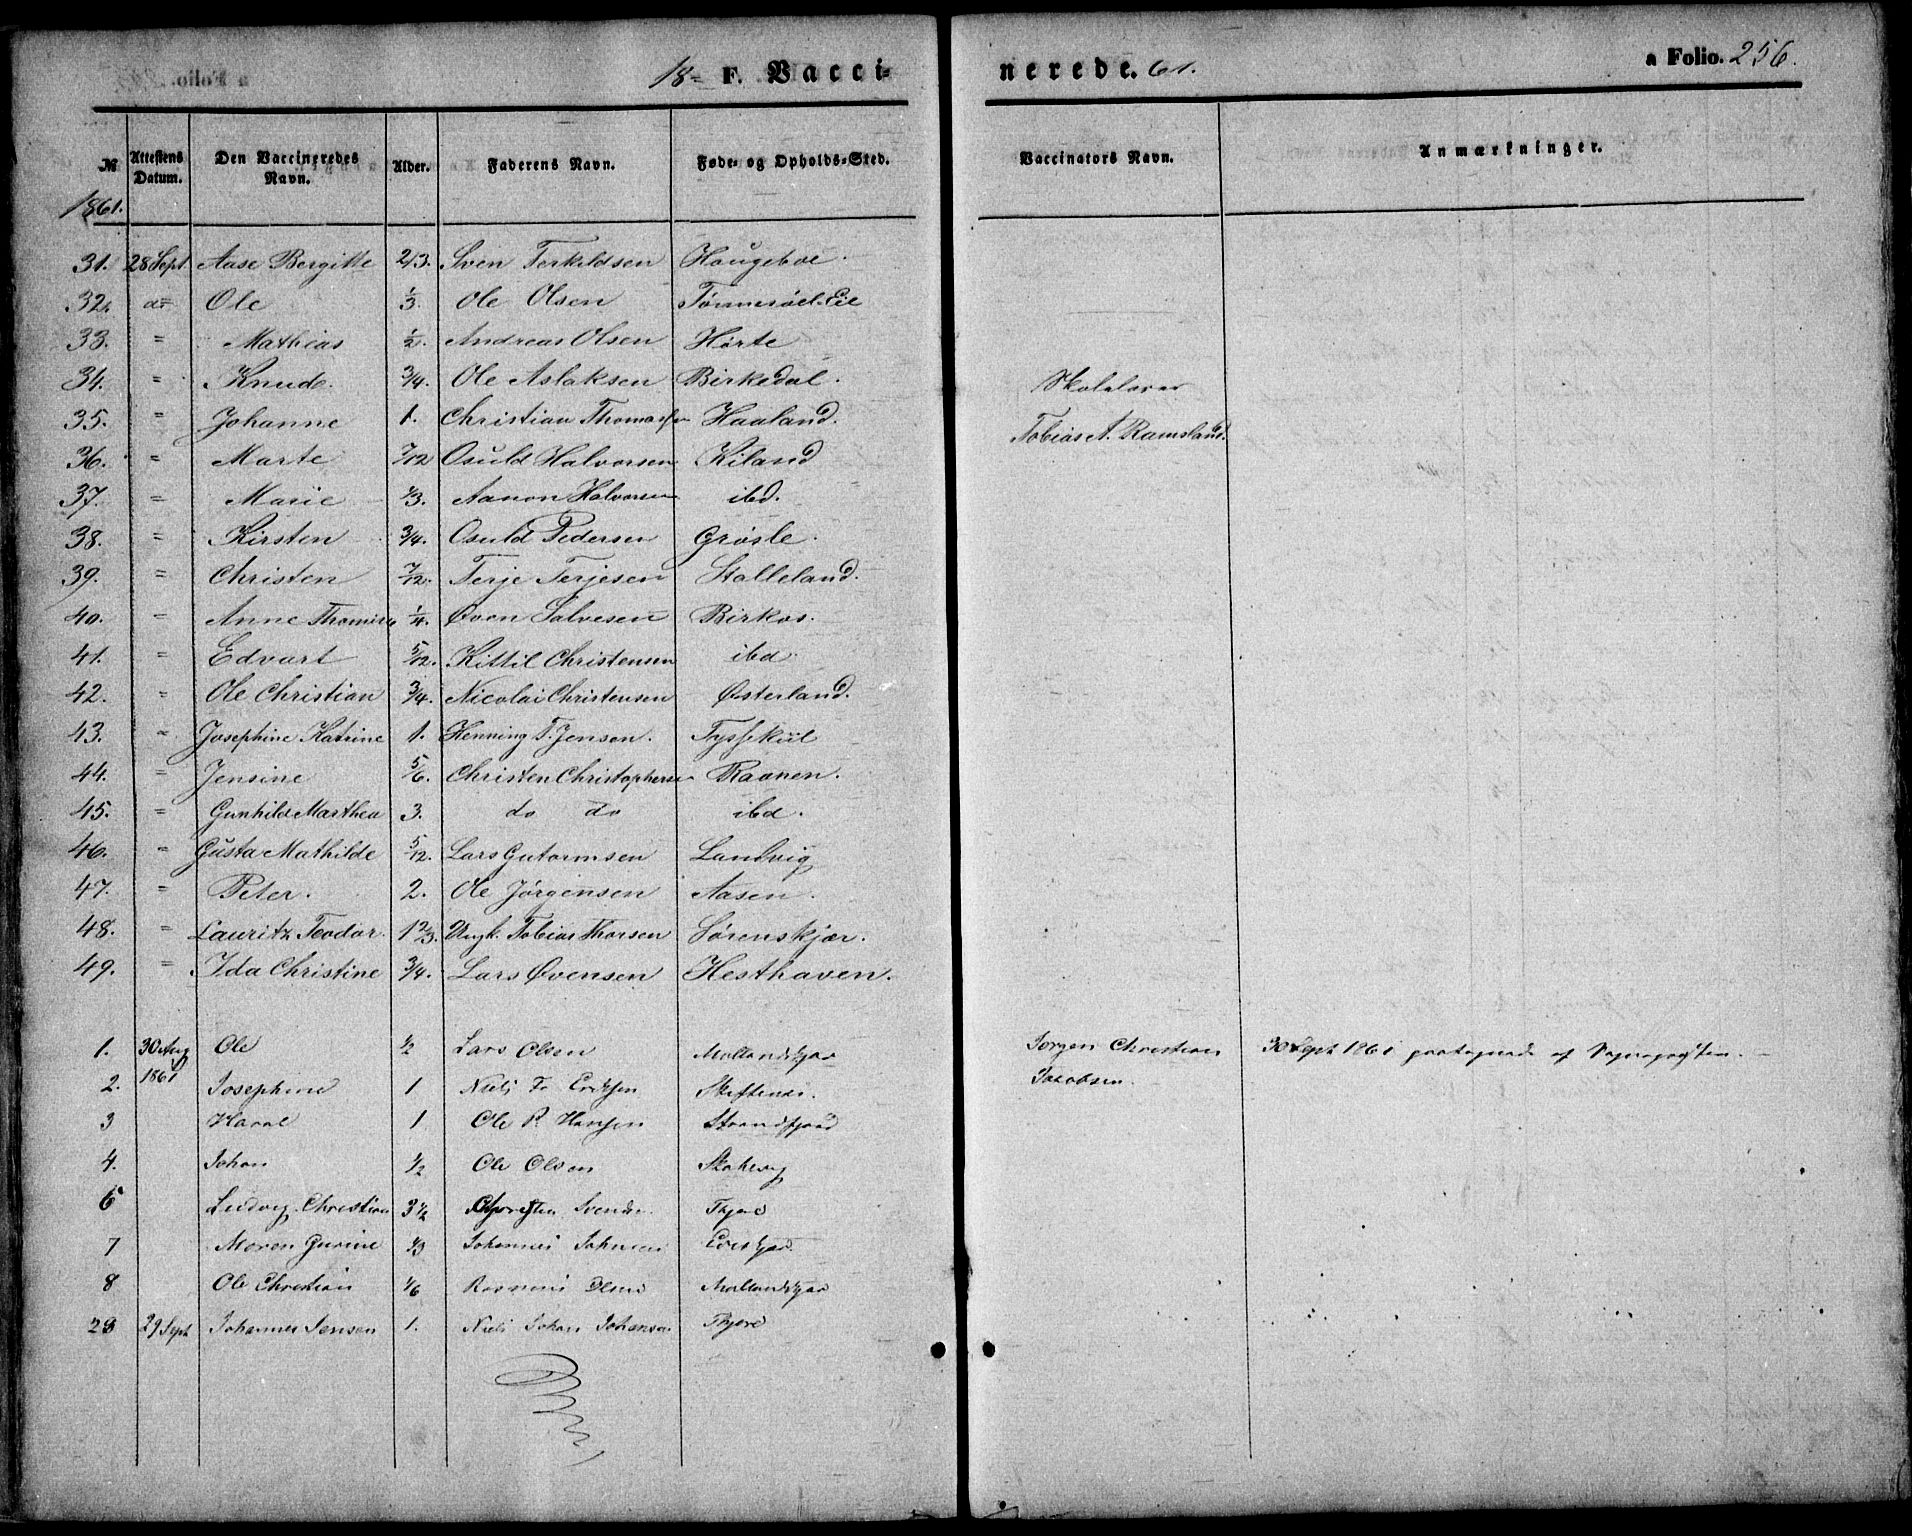 18 F. Vacci- nerede. 61. a Folio. 256.
№ Attestens Datum. Den Vaccineredes Navn. Alder. Faderens Navn. Føde- og Opholds-Sted. Vaccinators Navn. Anmærkninger.
1861.
31. 28 Sept Aase Bergitte 2/3. Sven Terkildsen Haugeboe.
32. do Ole 1/3. Ole Olsen
33. " Mathias 1/2. Andreas Olsen Hørte
34. " Knud. 3/4. Ole Aslaksen Birkedal. Skolelærer
35. " Johanne 1. Christian Thomassen Haaland. Tobias A. Ramsland.
36. " Marte 7/12 Osuld Halvorsen Kiland
37. " Marie 1/3. Aanon Halvorsen ibd.
38. " Kirsten 3/4. Osuld Pedersen Grøsle.
39. " Christen 7/12. Terje Terjesen Stalleland.
40. " Anne Thomine 1/4. Øven Salvesen Birkos.
41. " Edvart 5/12. Kittil Christensen ibd.
42. " Ole Christian 3/4. Nicolai Christensen Østerland.
43. " Josephine Katrine 1. Henning T. Jensen. Tyssekiil
44. " Jensine 5/6. Christen Christophersen Raanen.
45. " Gunhild Marthea 3. do do ibd.
46. " Gusta Mathilde 5/12. Lars Gutormsen Landvig
47. " Peter. 2. Ole Jørgensen Aasen.
48. " Lauritz Teodor. 1 2/3. Ungk. Tobias Thorsen Sørenskjær.
49. " Ida Christine 3/4. Lars Øvensen Hesthaven.
1. 30 Aug 1861 Ole 1/2 Lars Olsen Mollandskjær Jørgen Christian Jacobsen. 30 Sept 1861
2. Josephine 1 Niels Fr Eriksen
3 Haral 1 Ole R. Hansen Strandfjord
4. Johan 1/2 Ole Olsen
6 Ludvig Christian 3 1/2 Christen Svends. Fjære
7 Maren Gurine 1/3 Johannes
8 Ole Christian 1/6 Rasmus Olsen Mollandskjær
28 29 Sept Johannes Jensen 1. Niels Johan Johansen Fjære